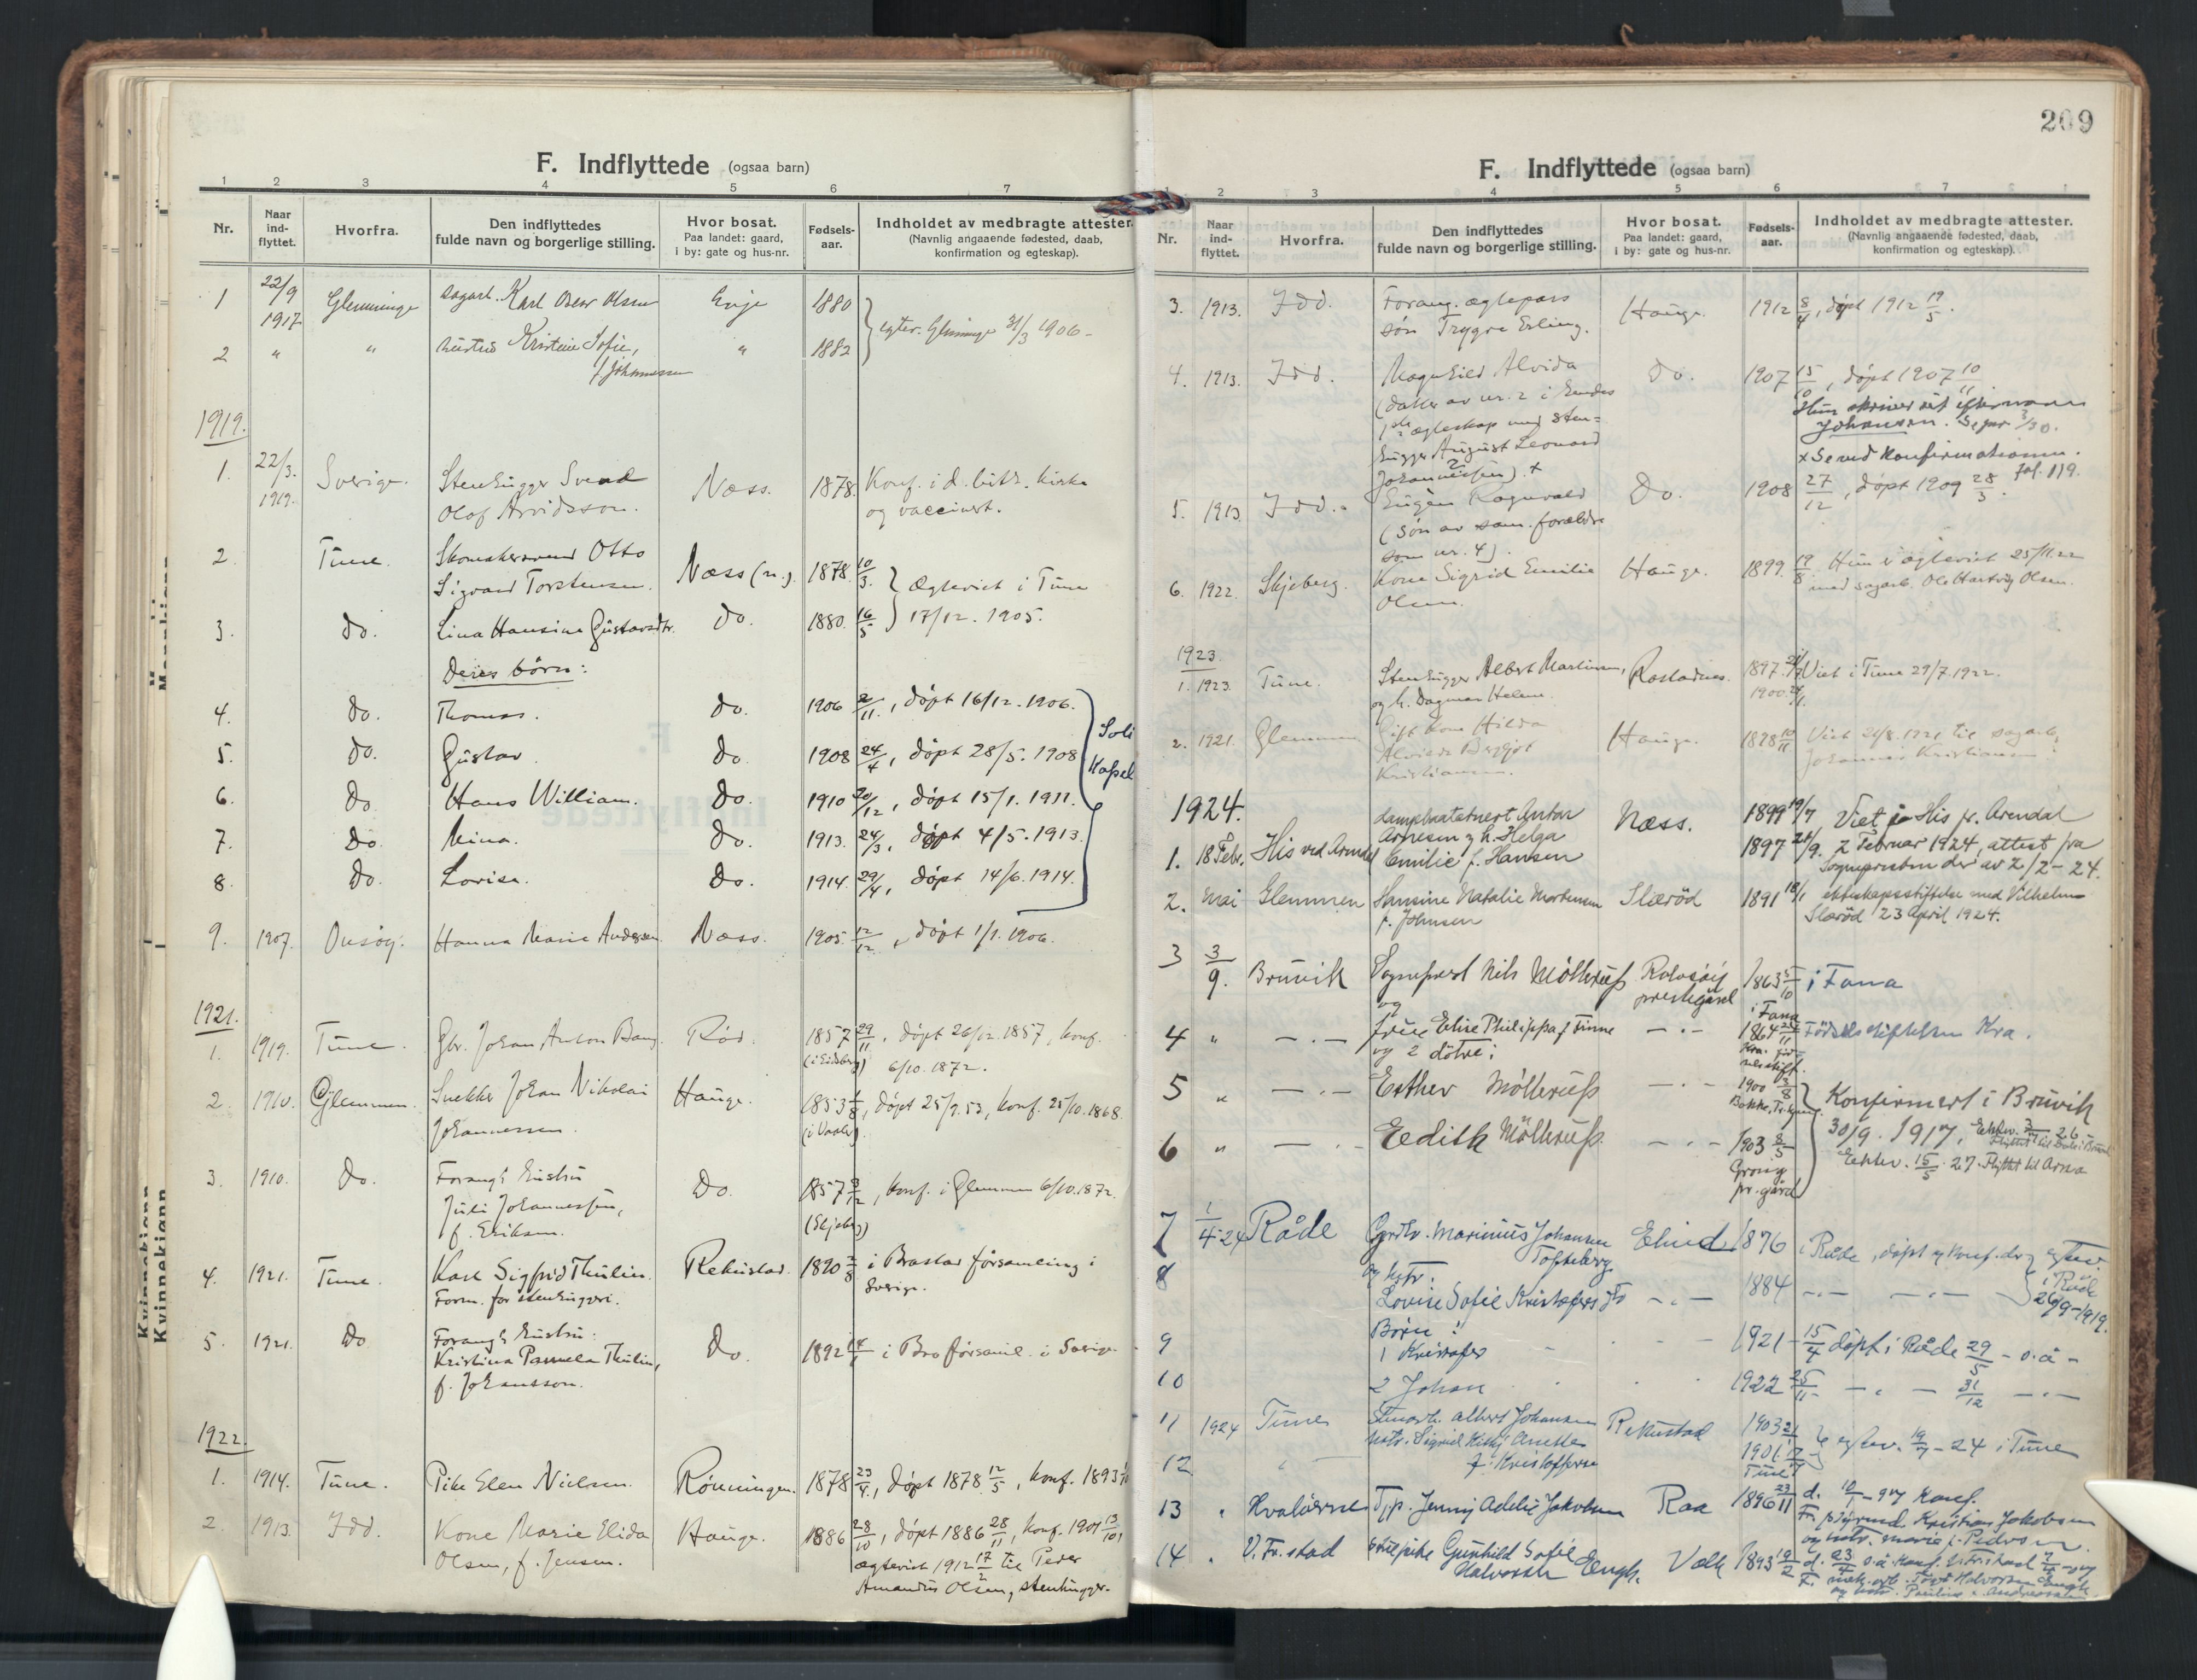 F. Indflyttede (ogsaa barn)
1 2 3 4 5 6 7
Nr. Naar ind-flyttet. Hvorfra. Den indflyttedes fulde navn og borgerlige stilling. Hvor bosat. Paa landet: gaard, i by: gate og hus-nr. Fødsels-aar. Indholdet av medbragte attester. (Navnlig angaaende fødested, daab, konfirmation og egteskap).
1 22/9 1917 Glemminge sagarb. Karl Oscar Olsen Evje 1880
egtev. Glemminge 31/3 1906-
2 " " hustru Kristine Sofie, " 1882
f. Johannessen
1919.
1. 22/3. 1919. Sverige. Stenhugger Svend Næss. 1878. Konf. i d. luth. kirke
Olof Arvidsson. og vaccinert.
2. Tune. Skomakersvend Otto Næss (n.). 1878. 10/3.
Sigvard Torstensen. Ægteviet i Tune
3. do. Lina Hansine Gustavsdtr. do. 1880. 16/5 17/12. 1905.
Deres børn:
4. do. Thomas. do. 1906 2/11., døpt 16/12. 1906.
Soli
5. do. Gustav. do. 1908 24/4, døpt 28/5. 1908
Kapel
6. do. Hans William. do. 1910 20/12, døpt 15/1. 1911.
7. do. Mina. do. 1913. 24/3, døpt 4/5. 1913.
8. do. Lovise. do. 1914. 29/4, døpt 14/6. 1914.
9. 1907. Onsøy. Hanna Marie Andersen. Næss. 1905. 12/12, døpt 1/1. 1906.
1921.
1. 1919. Tune. Gbr. Johan Anton Bang. Rød. 1857 29/11, døpt 26/12. 1857, konf.
(i Eidsberg) 6/10. 1872.
2. 1910. Glemmen. Snekker Johan Nikolai Hauge. 1853 1/8, døpt 25/9. 53, konf. 25/10. 1868.
Johannessen. (i Vaaler).
3. 1910. do. Forang's hustru do. 1857 3/12, konf. i Glemmen 6/10. 1872.
Juli Johannessen, (Skjeberg)
f. Eriksen.
4. 1921. Tune. Karl Sigfrid Thulin. Rekustad. 1890 3/8 i Brastad församling i
Form. for stenhuggeri. Sverige.
5. 1921. do Forang's hustru: do. 1892 14/1 i Bro församl. i Sverige.
Kristina Pamela Thulin,
f. Johansson.
1922.
1. 1914. Tune. Pike Elen Nielsen. Rönningen. 1878 23/4., døpt 1878 12/5, konf. 1893
2. 1913. Idd. Kone Marie Elida Hauge. 1886 28/10, døpt 1886 28/11, konf. 1901 13/10,
Olsen, f. Jensen. ægteviet 1912 17/2 til Peder
Amandus Olsen, stenhugger.
209
F. Indflyttede (ogsaa barn)
1 2 3 4 5 6 7
Nr. Naar ind-flyttet. Hvorfra. Den indflyttedes fulde navn og borgerlige stilling. Hvor bosat. Paa landet: gaard, i by: gate og hus-nr. Fødsels-aar. Indholdet av medbragte attester. (Navnlig angaaende fødested, daab, konfirmation og egteskap).
3. 1913. Idd. Forang. ægtepars Hauge. 1912 8/4, døpt 1912 19/5.
søn Trygve Erling.
4. 1913. Idd. Magnhild Alvida do. 1907 15/10, døpt 1907 10/11
(datter av nr. 2 i hendes Hun skriver sit efternavn
1ste ægteskap med sten- Johansen.
hugger August Leonard x Se ved konfirmationen.
Johannessen). x fol. 119.
5. 1913 Idd. Eugen Ragnvald do. 1908 27/12, døpt 1909 28/3.
(søn av sam. forældre
som nr. 4).
6. 1922. Skjeberg. Kone Sigrid Emilie Hauge. 1899. 19/8 Hun er ægteviet 25/11.22
Olsen. med sagarb. Ole Hartvig Olsen.
1923.
1. 1923. Tune. Stenhugger Albert Martinsen, 1897 Viet i Tune 29/7. 1922.
og h. Dagmar Helene. 1900
2. 1921. Glemmen Gift kone Hilda Hauge. 1898 10/11 Viet 1921 til sagarb.
Kristiansen. Johannes Kristiansen.
1924.
Anton Næss. 1899 19/7 Viet i His pr. Arendal
1. 18 Febr. His ved Arendal Arnesen og h. Helga 1897 2/9. 2 Februar 1924, attest fra
Emilie f. Hansen Sognepresten der av 2/2-24.
2. Mai Glemmen Hansine Natalie Mortensen Slærød 1891 18/1 ekteskapsstiftelse med Vilhelm
f. Johnsen Slærød 23 April 1924.
3 3/9. Bruvik Sogneprest Nils Möllerup Rolvsøy 1863 5/10 i Fana
og prestegård i Fana
4 " —.— frue Elise Philippa f. Finne —.— 1864 Fødselsstiftelsen Kra.
og 2 døtre:
5 " —.— Esther Møllerup —.— 1900 3/8
Konfirmert i Bruvik
6 " —.— Eedith Möllerup —.— 1903 8/5 30/9. 1917,
Grong Ektev. 15/5. 27. Flyttet til Arna
pr. gård
7 1/4-24 Råde Grdbr. Marinius Johansen Elund 1876 i Råde, døpt og konf. der og egtev.
Tofteberg i Råde
8 og hstr. 1884 —.— —.— 26/9-1919.
Lovise Sofie
Børn:
9 1 Kristofer 1921 - 15/4 døpt i Råde 29/5 - s. å -
10 2 Johan 1922 25/11 — . — 31/12 —.—
11 1924 Tune Albert Johansen Rekustad 1903 egtev. 19/7 - 24 i Tune
12 hstr. Sigrid Anette 1901
f. Kristoffersen Tune
13 " Hvaløerne Tjp. Jenny Adelie Jakobsen Raa 1896 23/11 d. konf.
Kristian Jakobsen
og hstr. Marie f. Pedersen.
14 " V. Fr.stad Gunhild Sofie Valle 1893 19/2 d. 23/4 s. å. konf.
Halvorsen Engh.